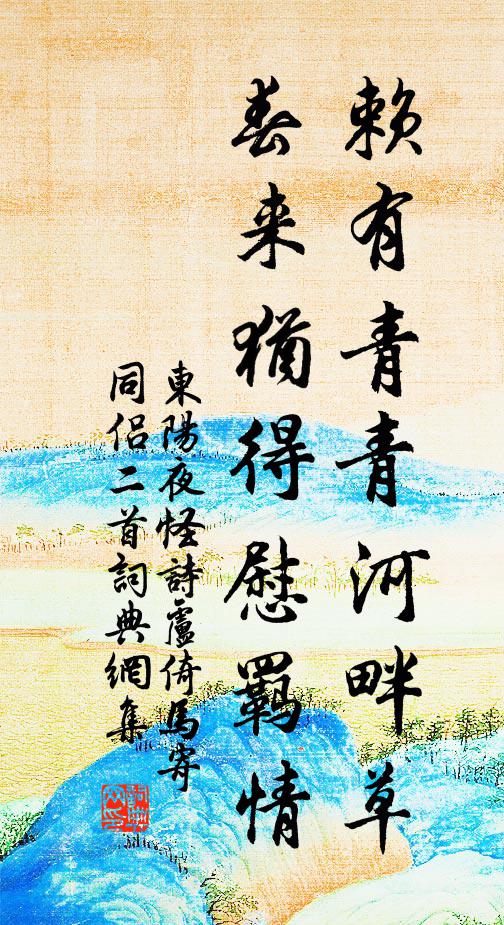 賴有青青河畔草
春来猶得慰羈情
東陽夜怪詩盧倚馬寄
同侶二首詞典網集